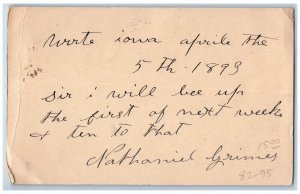 write iowa aprile the
5 th - 1893
sir i will bee up
the first of next week
& ten to that
Nathaniel Grimes
82-95